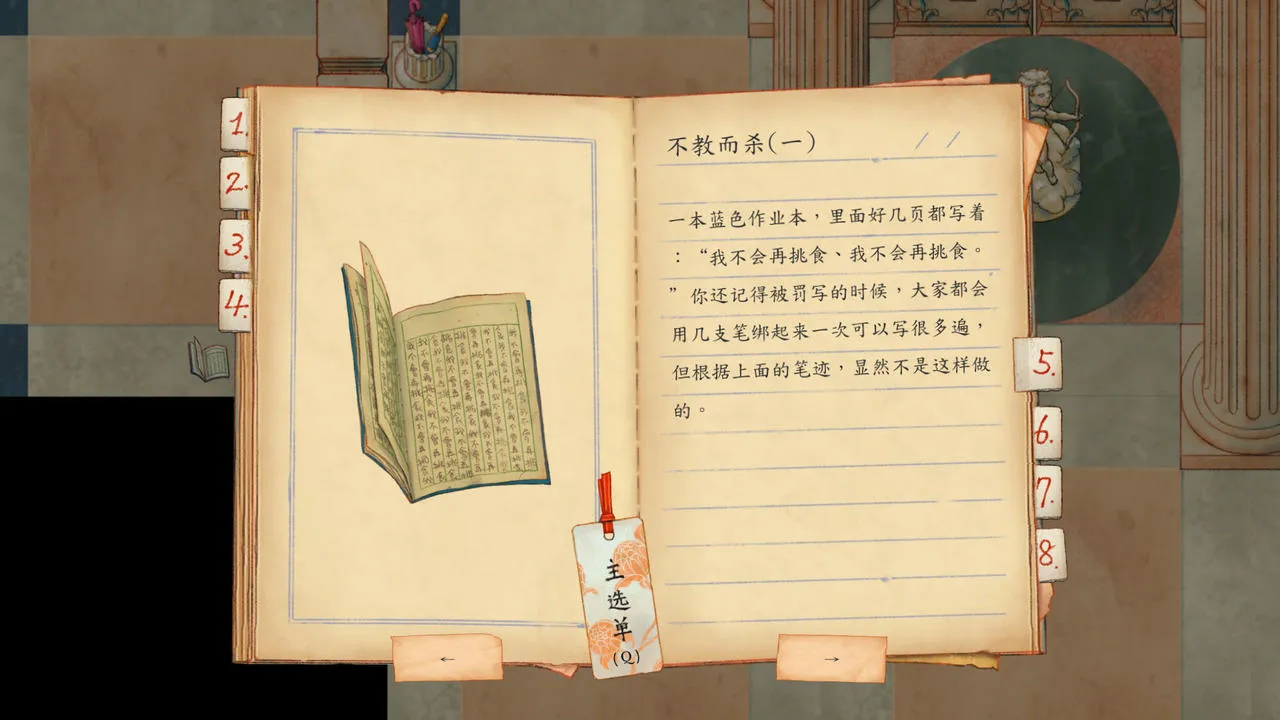 1.
2.
3.
4.
不教而杀(一)
/ /
一本蓝色作业本，里面好几页都写着
：“我不会再挑食、我不会再挑食。
”你还记得被罚写的时候，大家都会
用几支笔绑起来一次可以写很多遍，
但根据上面的笔迹，显然不是这样做
的。
5.
6.
7.
8.
主选单
(Q)
←
→